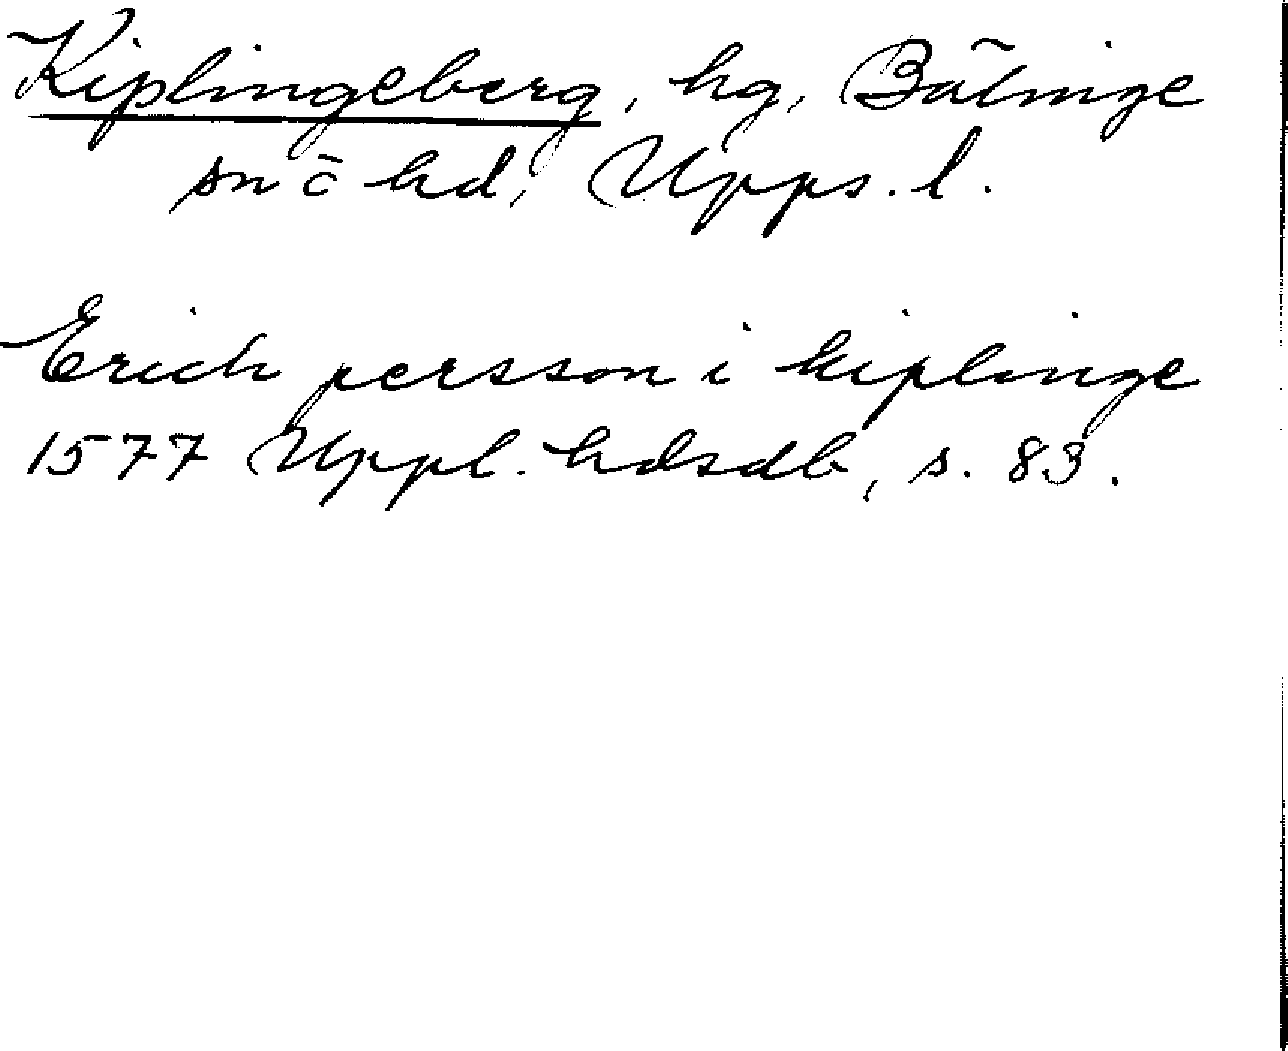 Kiplingeberg, hg, Bälinge
sn o hd, Upps. l.
Erich persson i kiplinge
1577 Uppl. hdsdb, s. 83.